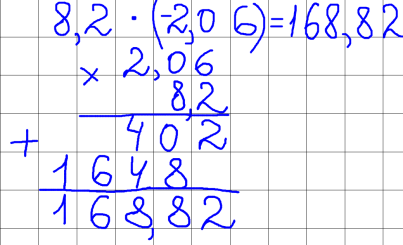 8,2 · (-2,06)=168,82
× 2,06
8,2
+ 402
1648
168,82